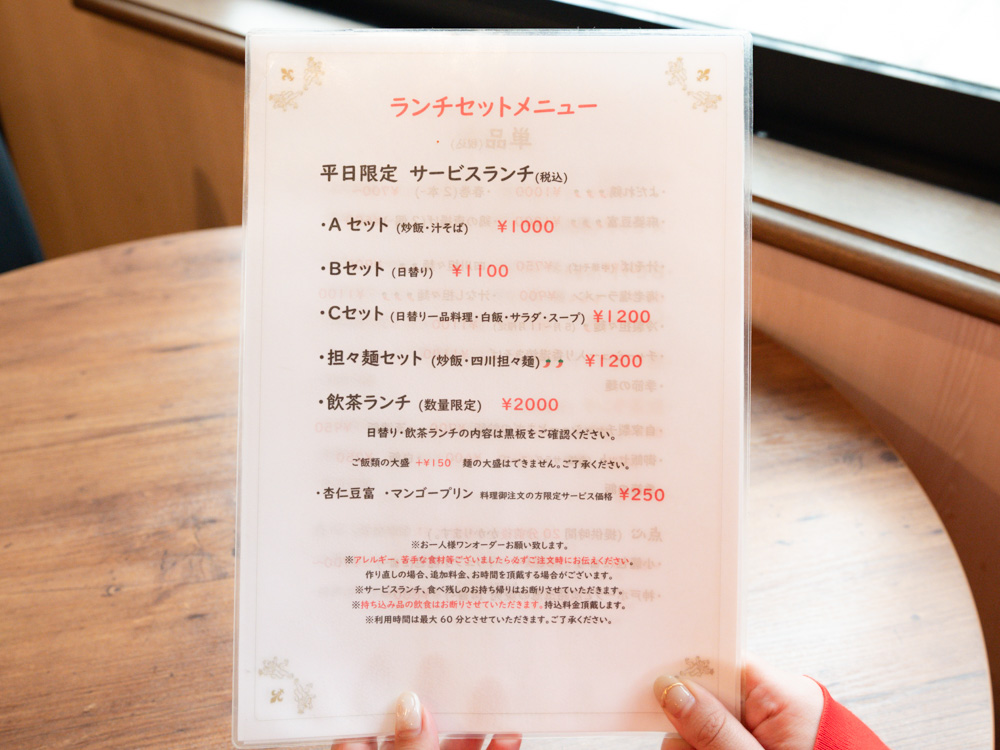 ランチセットメニュー
平日限定 サービスランチ(税込)
・Aセット (炒飯・汁そば) ¥1000
・Bセット (日替り) ¥1100
・Cセット (日替り一品料理・白飯・サラダ・スープ) ¥1200
・担々麺セット (炒飯・四川担々麺) ¥1200
・飲茶ランチ (数量限定) ¥2000
日替り・飲茶ランチの内容は黒板をご確認ください。
ご飯類の大盛 +¥150 麺の大盛はできません。ご了承ください。
・杏仁豆富 ・マンゴープリン 料理御注文の方限定サービス価格 ¥250
※お一人様ワンオーダーお願い致します。
※アレルギー、苦手な食材等ございましたら必ずご注文時にお伝えください。
作り直しの場合、追加料金、お時間を頂戴する場合がございます。
※サービスランチ、食べ残しのお持ち帰りはお断りさせていただきます。
※持ち込み品の飲食はお断りさせていただきます。持込料金頂戴します。
※利用時間は最大 60 分とさせていただきます。ご了承ください。